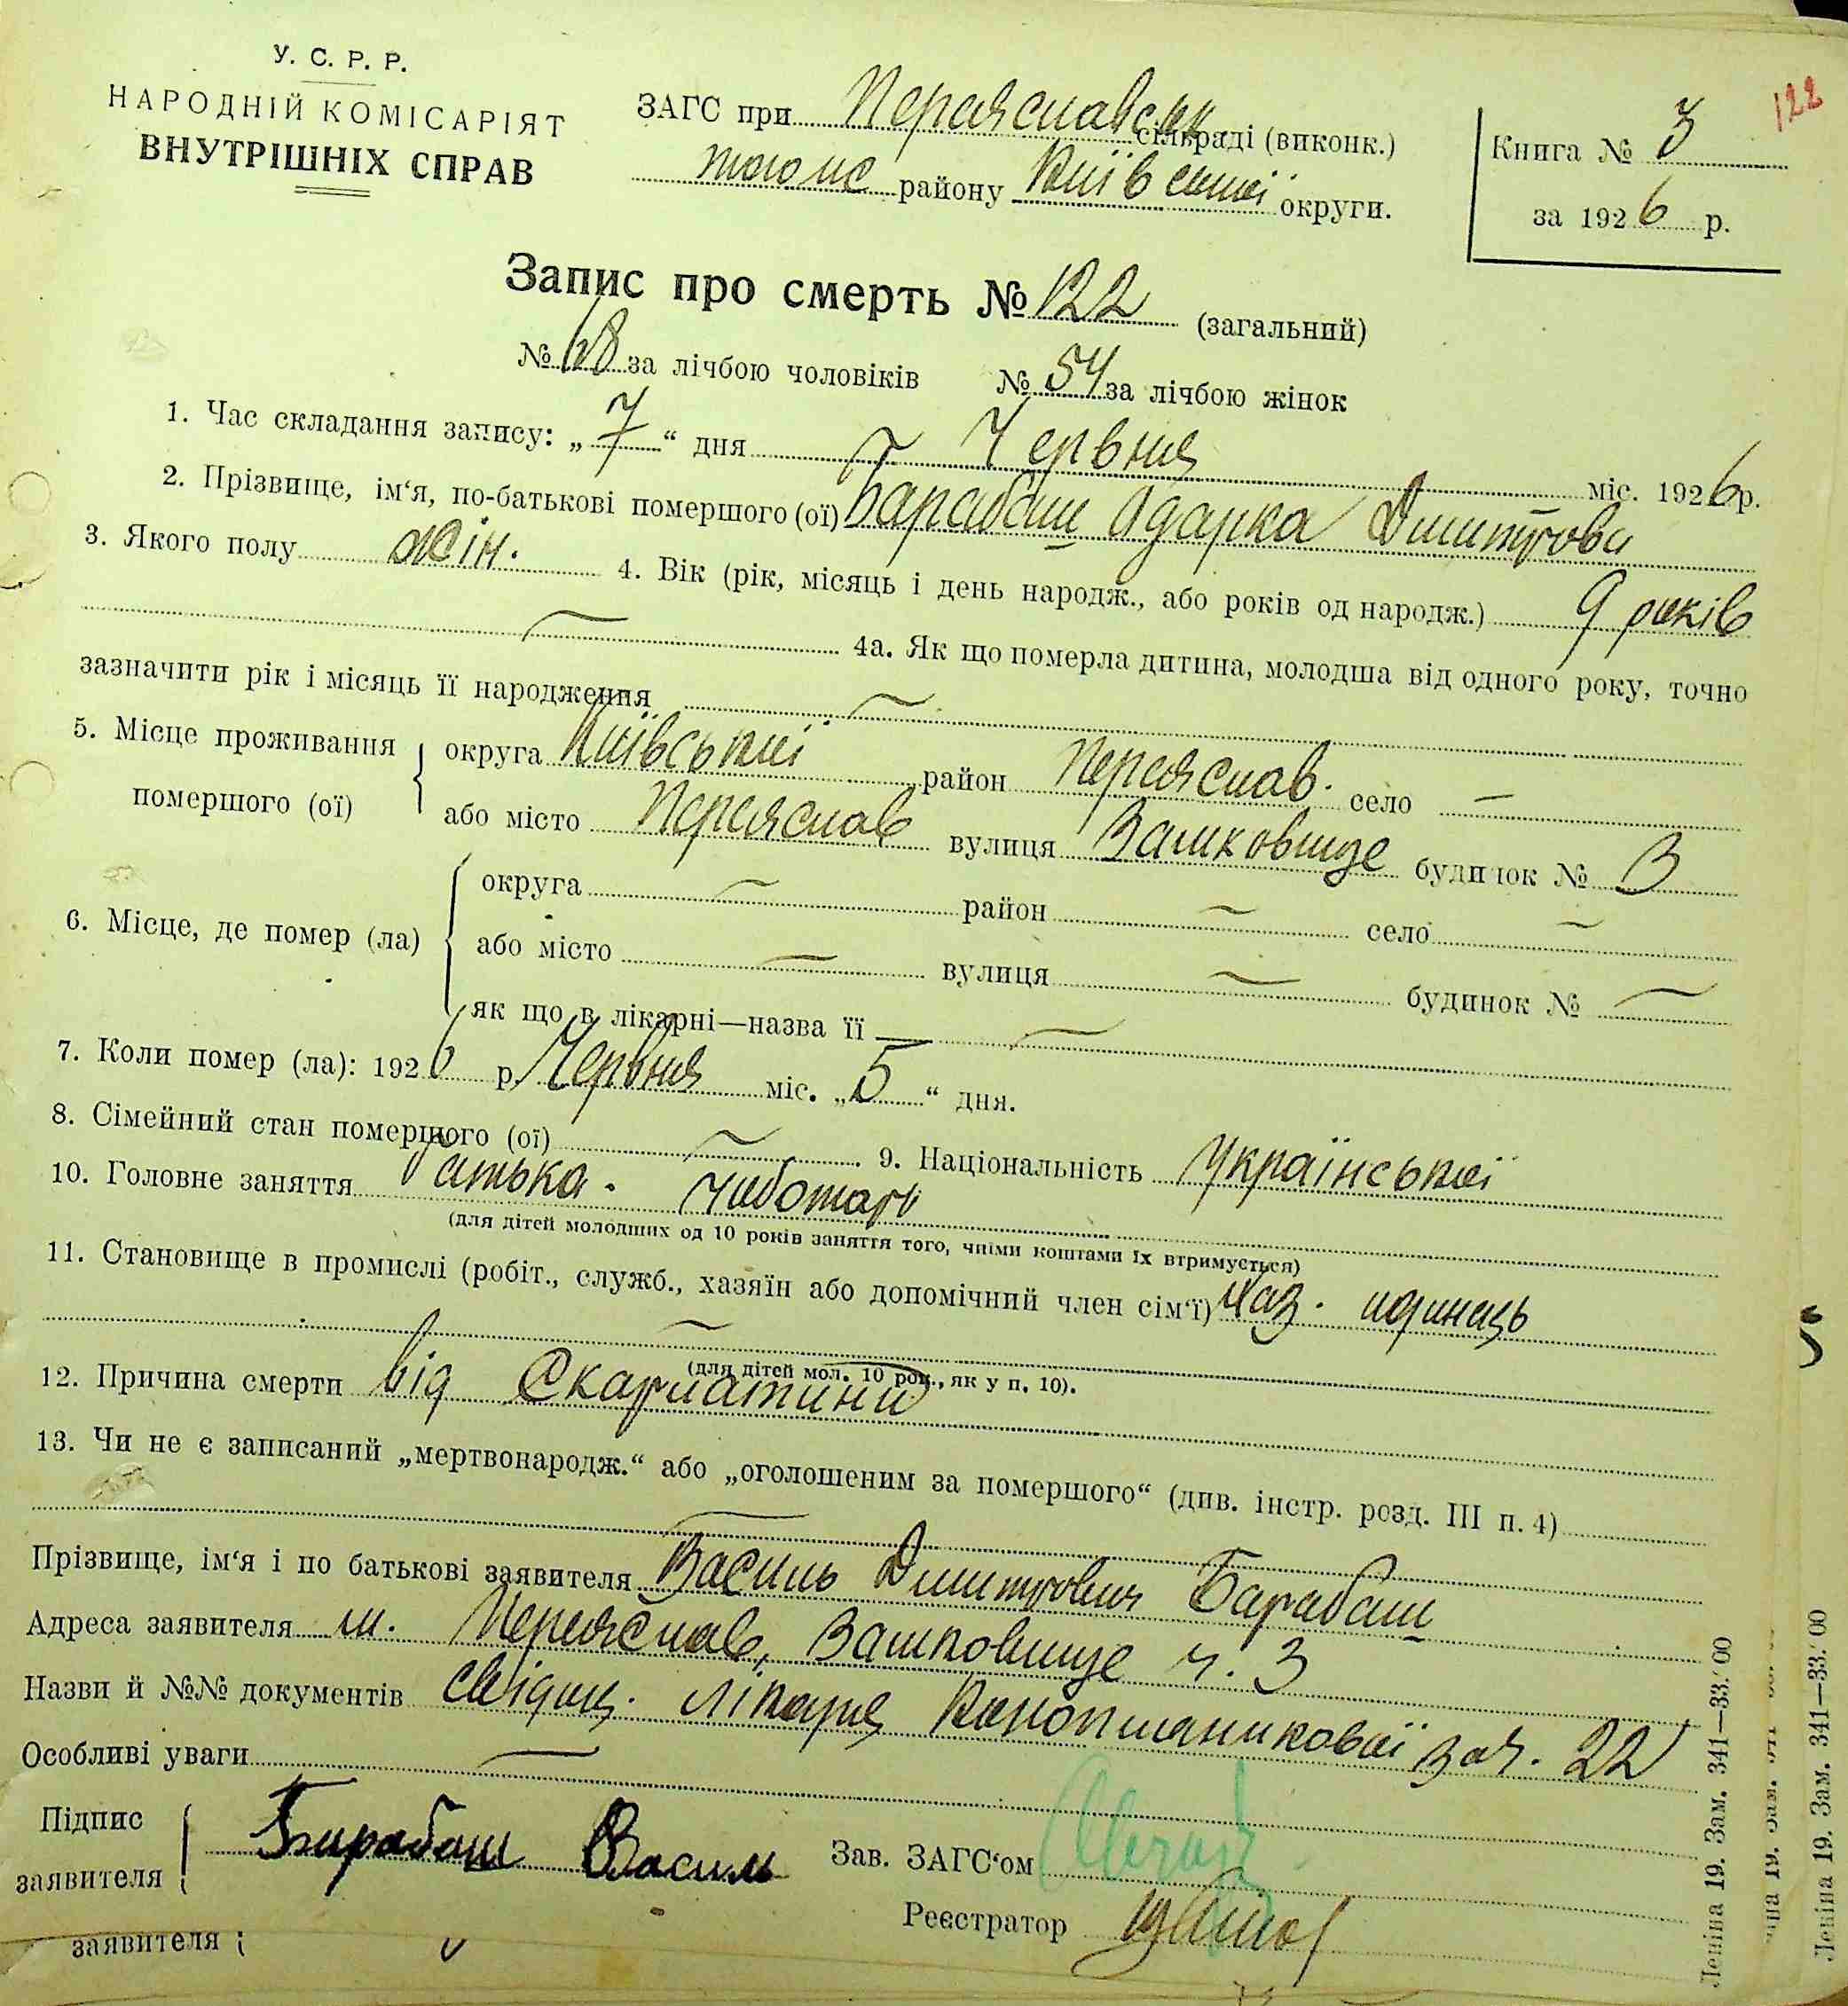 У. С. Р. Р.
НАРОДНІЙ КОМІСАРІЯТ
ВНУТРІШНІХ СПРАВ
ЗАГС при Переяславськ. сільраді (виконк.)
того ж району Київської округи.
Книга № 3
за 1926 р.
122
Запис про смерть № 122 (загальний)
№ 68 за лічбою чоловіків № 54 за лічбою жінок
1. Час складання запису: „7“ дня Червня міс. 1926 р.
2. Прізвище, ім‘я, по-батькові помершого (ої) Барабаш Одарка Дмитрова
3. Якого полу жін. 4. Вік (рік, місяць і день народж., або років од народж.) 9 років
4а. Як що померла дитина, молодша від одного року, точно
зазначити рік і місяць її народження
5. Місце проживання помершого (ої)
округа Київської район Переяслав. село —
або місто Переяслав вулиця Замковище будинок № 3
6. Місце, де помер (ла)
округа — район — село —
або місто — вулиця — будинок № —
як що в лікарні—назва її —
7. Коли помер (ла): 1926 р. Червня міс. „5“ дня.
8. Сімейний стан помершого (ої) — 9. Національність Української
10. Головне заняття батька. чоботарь
(для дітей молодших од 10 років заняття того, чиїми коштами їх втримується)
11. Становище в промислі (робіт., служб., хазяїн або допомічний член сім‘ї) Хаз. одинець
(для дітей мол. 10 рок., як у п. 10).
12. Причина смерти від Скарлатини
13. Чи не є записаний „мертвонародж.“ або „оголошеним за помершого“ (див. інстр. розд. III п. 4)
Прізвище, ім‘я і по батькові заявителя Василь Дмитрович Барабаш
Адреса заявителя м. Переяслав, Замковище ч. 3
Назви й №№ документів свідоц. лікаря за ч. 22
Особливі уваги —
Підпис заявителя Барабаш Василь
Зав. ЗАГС‘ом
Реєстратор
заявителя
Леніна 19. Зам. 341—33.’00
Леніна 19. Зам. 341—33.’00